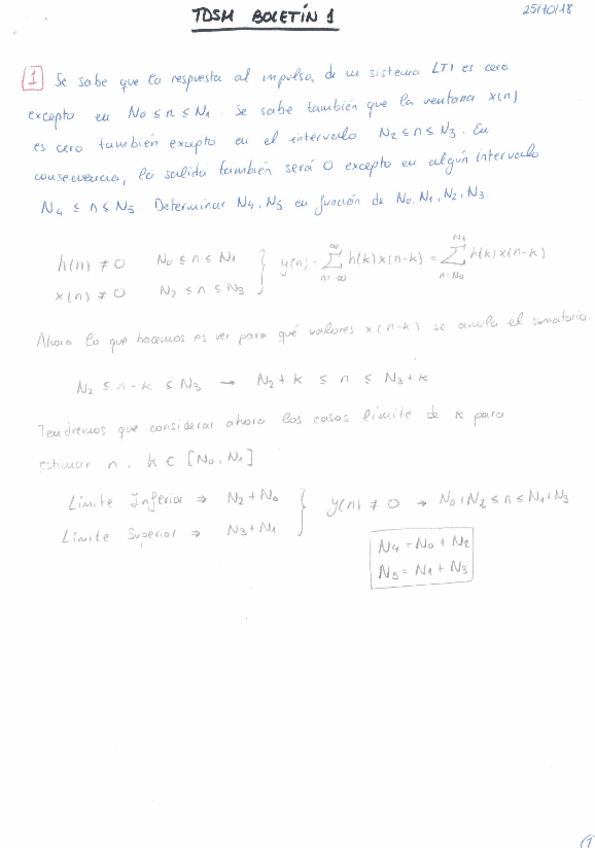 TDSM BOLETÍN 1
25/10/18
1 Se sabe que la respuesta al impulso, de un sistema LTI es cero
excepto en N0 ≤ n ≤ N1. Se sabe también que la ventana x(n)
es cero también excepto en el intervalo N2 ≤ n ≤ N3. En
consecuencia, la salida también será 0 excepto en algún intervalo
N4 ≤ n ≤ N5. Determinar N4, N5 en función de N0, N1, N2, N3.
h(n) ≠ 0 N0 ≤ n ≤ N1
x(n) ≠ 0 N2 ≤ n ≤ N3
} y(n) = ∑_{n=-∞}^{∞} h(k) x(n-k) = ∑_{n=N0}^{N1} h(k) x(n-k)
Ahora lo que hacemos es ver para qué valores x(n-k) se anula el sumatorio.
N2 ≤ n-k ≤ N3 → N2+k ≤ n ≤ N3+k
Tendremos que considerar ahora los casos límite de k para
estimar n. k ∈ [N0, N1]
Límite Inferior ⇒ N2+N0
Límite Superior ⇒ N3+N1
} y(n) ≠ 0 → N0+N2 ≤ n ≤ N1+N3
N4 = N0 + N2
N5 = N1 + N3
1